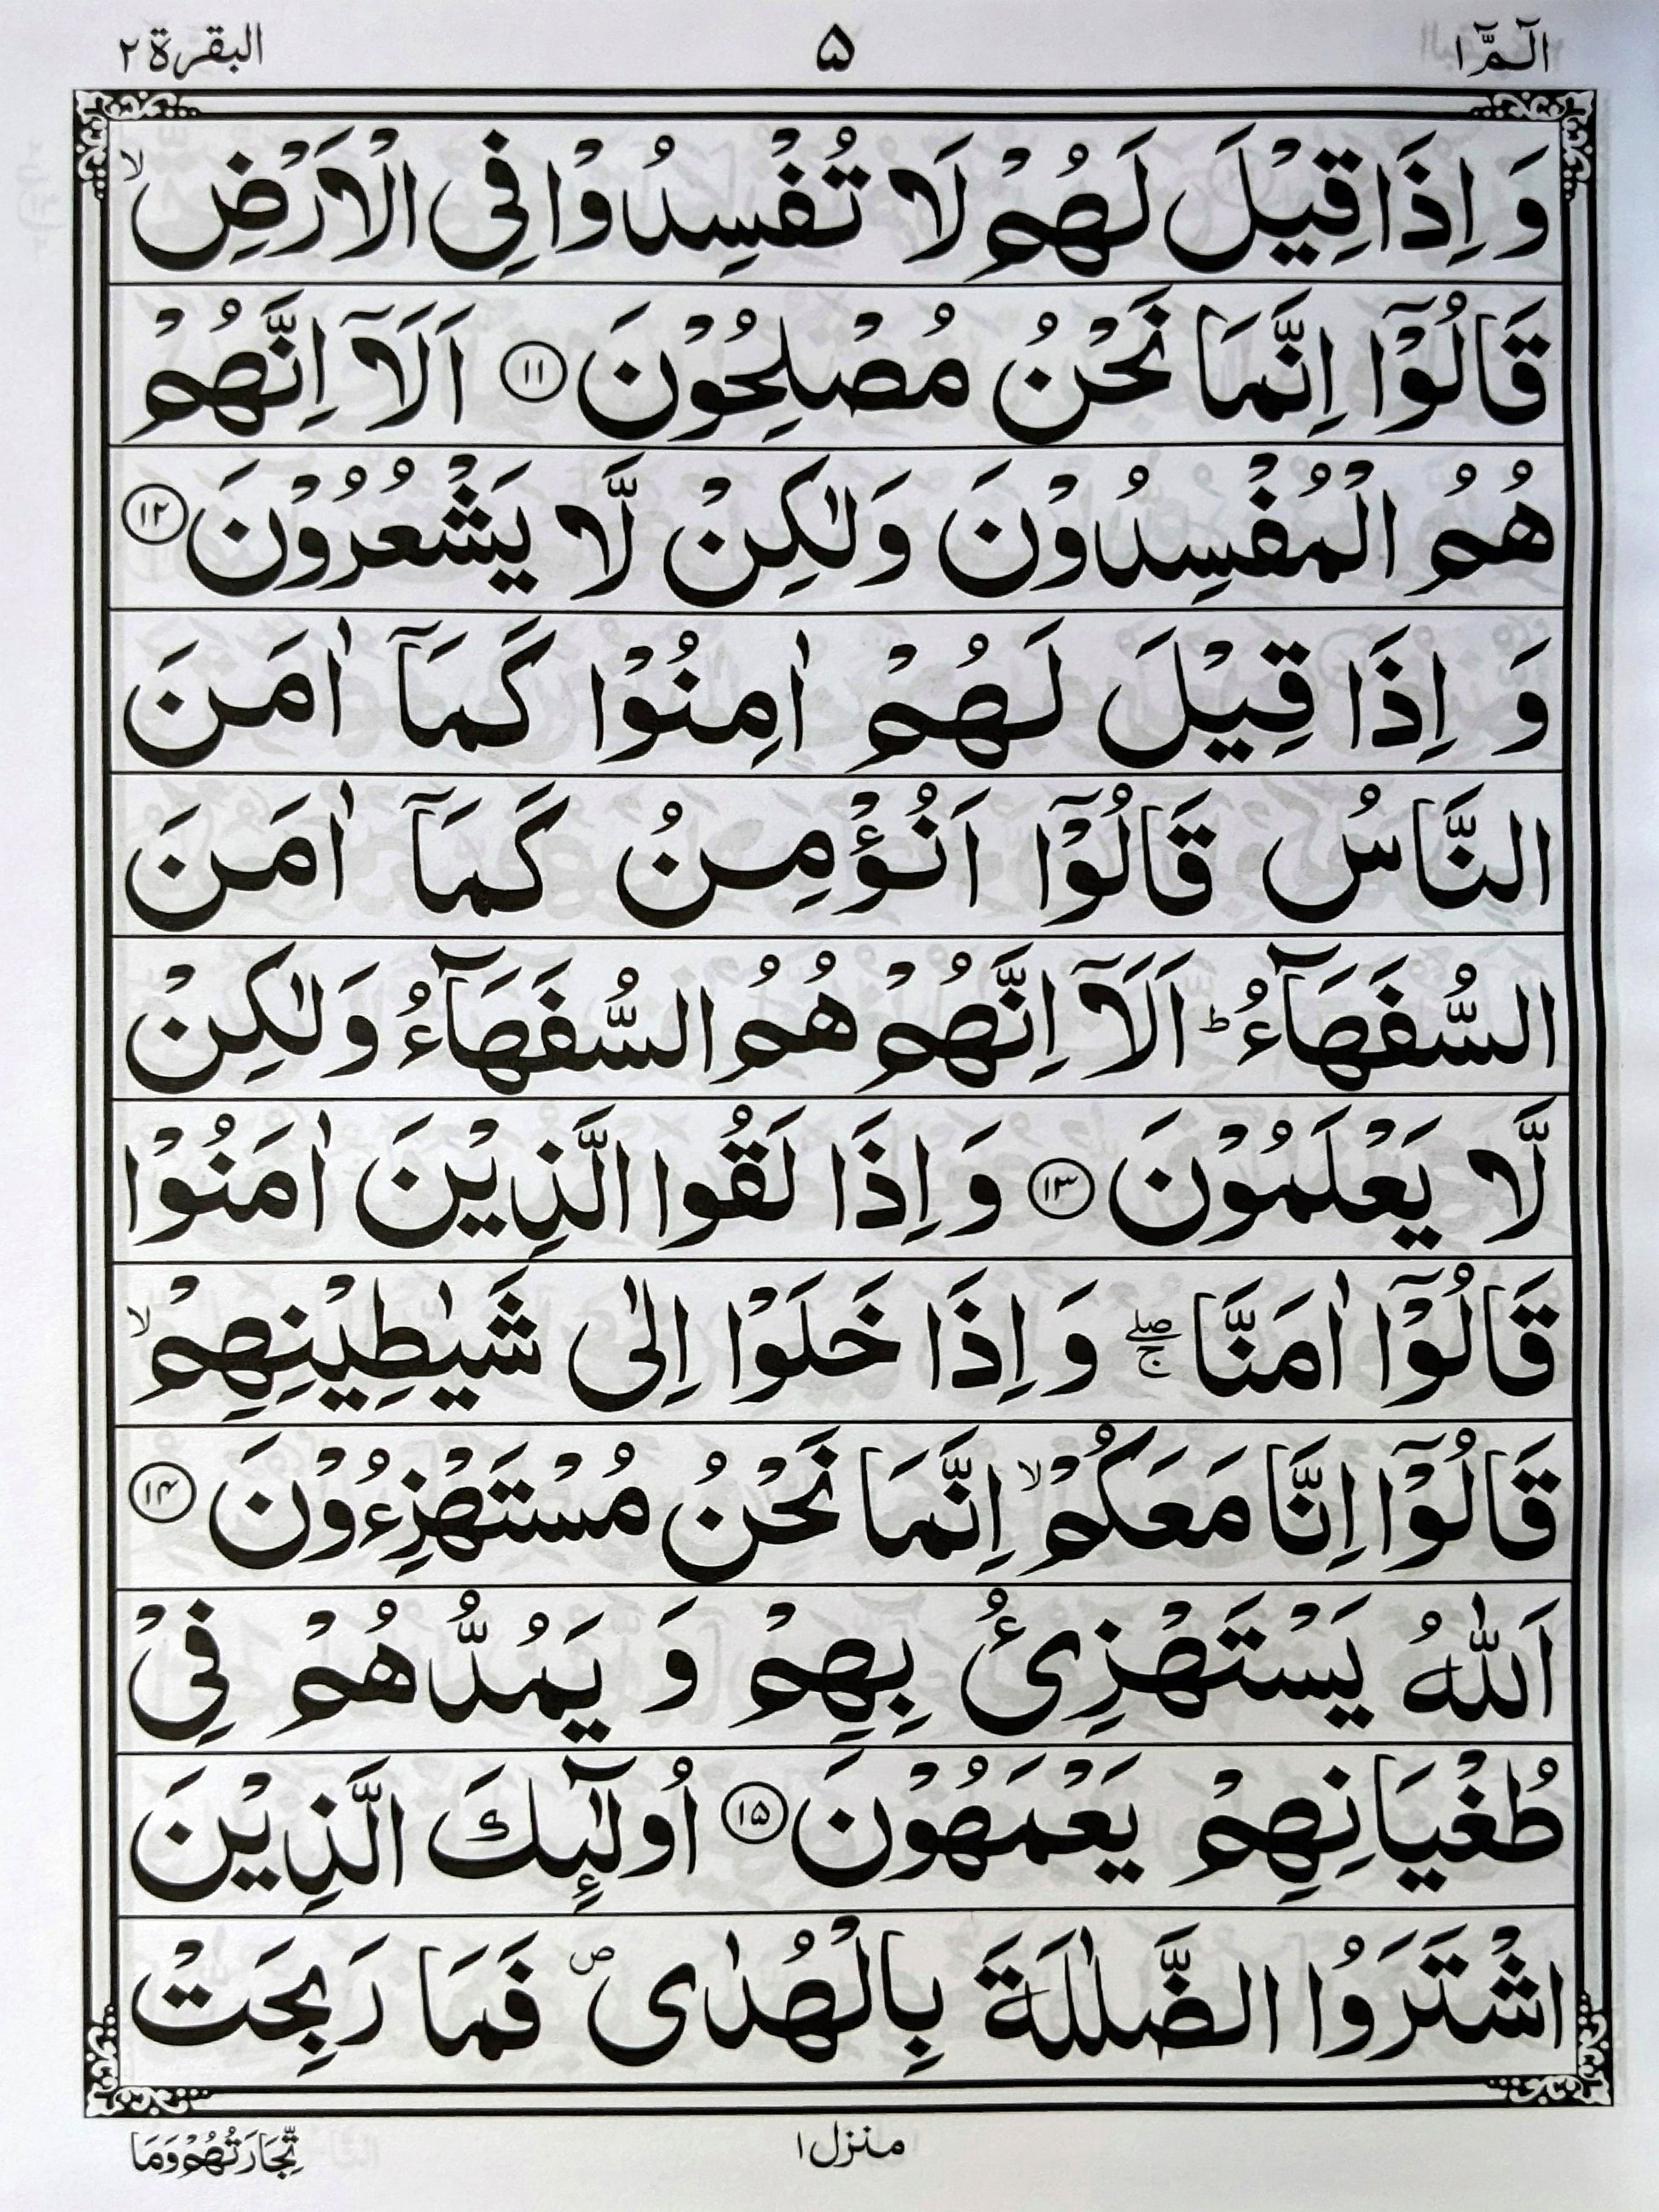 الٓمّٓ ١ ۵ البقرة ٢
وَ اِذَا قِيْلَ لَهُمْ لَا تُفْسِدُوْا فِى الْاَرْضِ ۙ
قَالُوْٓا اِنَّمَا نَحْنُ مُصْلِحُوْنَ ⑪ اَلَآ اِنَّهُمْ
هُمُ الْمُفْسِدُوْنَ وَلٰكِنْ لَّا يَشْعُرُوْنَ ⑫
وَ اِذَا قِيْلَ لَهُمْ اٰمِنُوْا كَمَآ اٰمَنَ
النَّاسُ قَالُوْٓا اَنُؤْمِنُ كَمَآ اٰمَنَ
السُّفَهَآءُ ؕ اَلَآ اِنَّهُمْ هُمُ السُّفَهَآءُ وَلٰكِنْ
لَّا يَعْلَمُوْنَ ⑬ وَ اِذَا لَقُوا الَّذِيْنَ اٰمَنُوْا
قَالُوْٓا اٰمَنَّا ۖۚ وَ اِذَا خَلَوْا اِلٰى شَيٰطِيْنِهِمْ ۙ
قَالُوْٓا اِنَّا مَعَكُمْ ۙ اِنَّمَا نَحْنُ مُسْتَهْزِءُوْنَ ⑭
اَللّٰهُ يَسْتَهْزِئُ بِهِمْ وَ يَمُدُّهُمْ فِىْ
طُغْيَانِهِمْ يَعْمَهُوْنَ ⑮ اُولٰٓئِكَ الَّذِيْنَ
اشْتَرَوُا الضَّلٰلَةَ بِالْهُدٰى ۪ فَمَا رَبِحَتْ
منزل ١
تِّجَارَتُهُمْ وَمَا